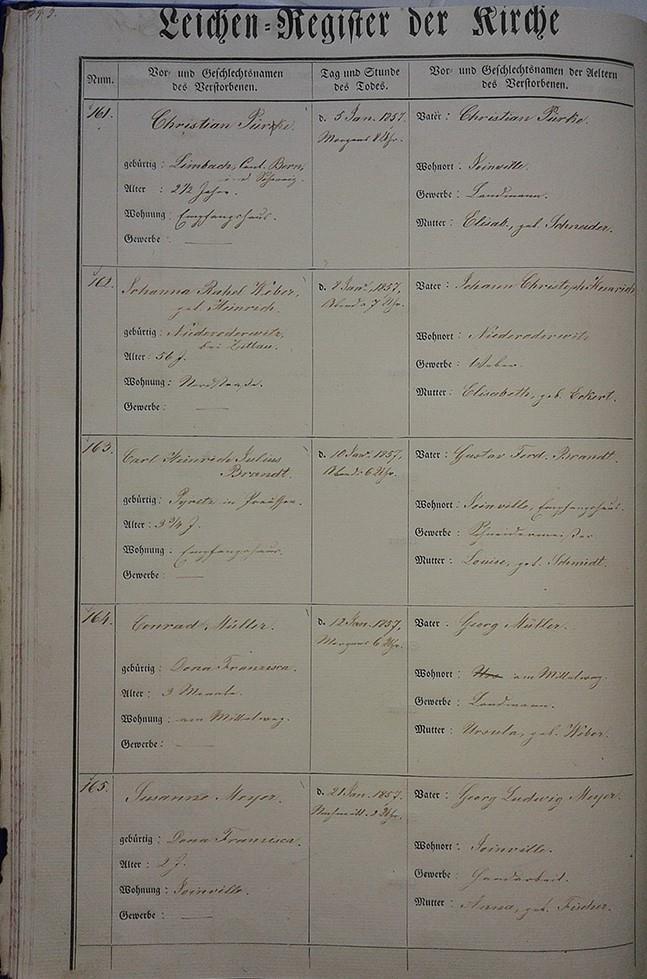 Leichen-Register der Kirche
Num.
Vor- und Geschlechtsnamen
des Verstorbenen.
Tag und Stunde
des Todes.
Vor- und Geschlechtsnamen der Aeltern
des Verstorbenen.
161.
Christian Pürke.
gebürtig: Limbach, Cant. Bern,
Alter: 2 1/2 Jahre.
Wohnung: Empfangshaus.
Gewerbe:
d. 5 Jan. 1857.
Morgens 8 Uhr.
Vater: Christian Pürke.
Wohnort: Joinville.
Gewerbe: Landmann.
Mutter: Elisab., geb. Schneider.
162.
Johanna Rahel Weber,
geb. Heinrich.
gebürtig: Niederoderwitz,
bei Zittau.
Alter: 56 J.
Wohnung: Nordstraße.
Gewerbe:
d. 8 Jan. 1857.
Abends 7 Uhr.
Vater: Johann Christoph Heinrich
Wohnort: Niederoderwitz
Gewerbe: Weber.
Mutter: Elisabeth, geb. Eckert.
163.
Carl Heinrich Julius
Brandt.
gebürtig: Pyritz in Preußen.
Alter: 3 3/4 J.
Wohnung: Empfangshaus.
Gewerbe:
d. 10 Jan. 1857.
Abends 6 Uhr.
Vater: Gustav Ferd. Brandt.
Wohnort: Joinville, Empfangshaus.
Gewerbe: Schneidermeister
Mutter: Louise, geb. Schmidt.
164.
Conrad Müller.
gebürtig: Dona Franzisca.
Alter: 3 Monate.
Wohnung: am Mittelweg.
Gewerbe:
d. 12 Jan. 1857.
Morgens 6 Uhr.
Vater: Georg Müller.
Wohnort: am Mittelweg.
Gewerbe: Landmann.
Mutter: Ursula, geb. Weber.
165.
Susanne Meyer.
gebürtig: Dona Franzisca.
Alter: 2 J.
Wohnung: Joinville.
Gewerbe:
d. 21 Jan. 1857.
Nachmitt. 2 Uhr.
Vater: Georg Ludwig Meyer.
Wohnort: Joinville.
Gewerbe: Handarbeit.
Mutter: Anna, geb. Fischer.